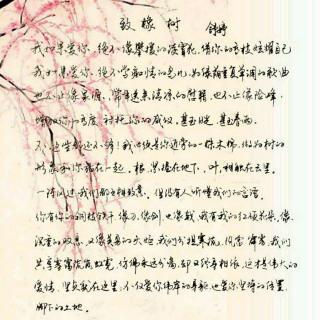 致橡树 舒婷
我如果爱你，绝不像攀援的凌霄花，借你的高枝炫耀自己
我如果爱你，绝不学痴情的鸟儿，为绿荫重复单调的歌曲
也不止像泉源，常年送来清凉的慰藉，也不止像险峰，
增加你的高度，衬托你的威仪，甚至日光，甚至春雨。
不，这些都还不够！我必须是你近旁的一株木棉，做为树的
形象和你站在一起。根，紧握在地下，叶，相触在云里。
一阵风过，我们都互相致意，但没有人听懂我们的言语。
你有你的铜枝铁干，像刀，像剑，也像戟，我有我的红硕花朵，像
沉重的叹息，又像英勇的火炬，我们分担寒流，风雷，霹雳，我们
共享雾霭流岚虹霓，仿佛永远分离，却又终身相依，这才是伟大的
爱情，坚贞就在这里，不仅爱你伟岸的身躯，也爱你坚持的位置，
脚下的土地。